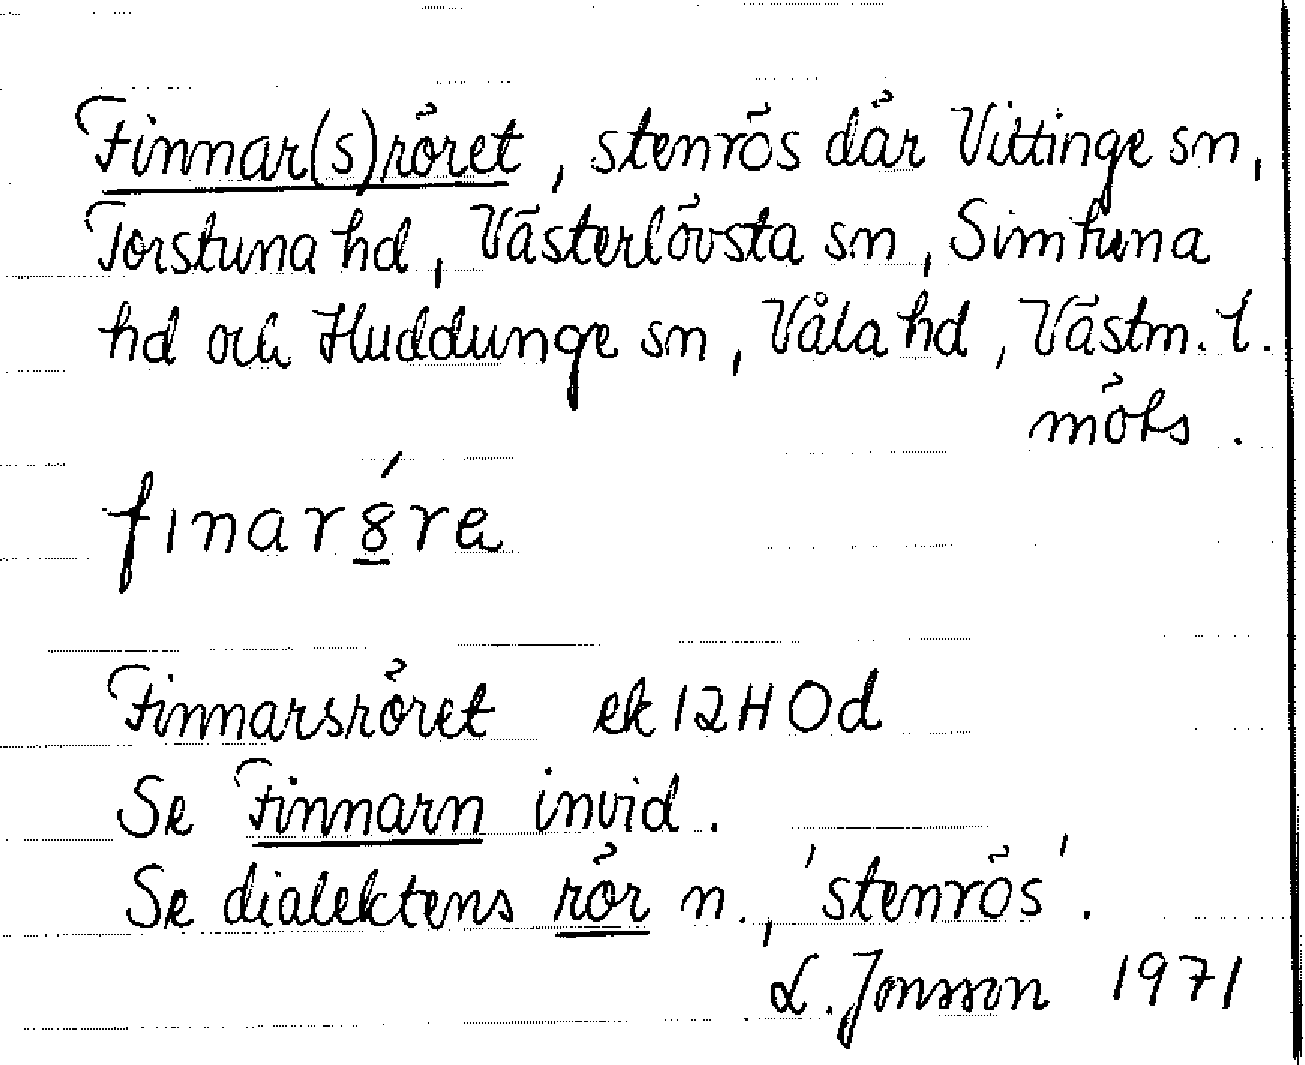 Finnar(s)röret, stenrös där Vittinge sn,
Torstuna hd, Västerlövsta sn, Simtuna
hd och Huddunge sn, Våla hd, Västm. l.
möts.
fınarȣ́re
Finnarsröret ek 12H0d
Se Finnarn invid.
Se dialektens rör n., 'stenrös'.
L. Jonsson 1971